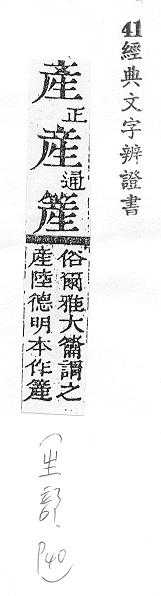 41經典文字辨證書
產正
産通
簅
俗爾雅大籥謂之
產陸德明本作簅
(生部, P40)